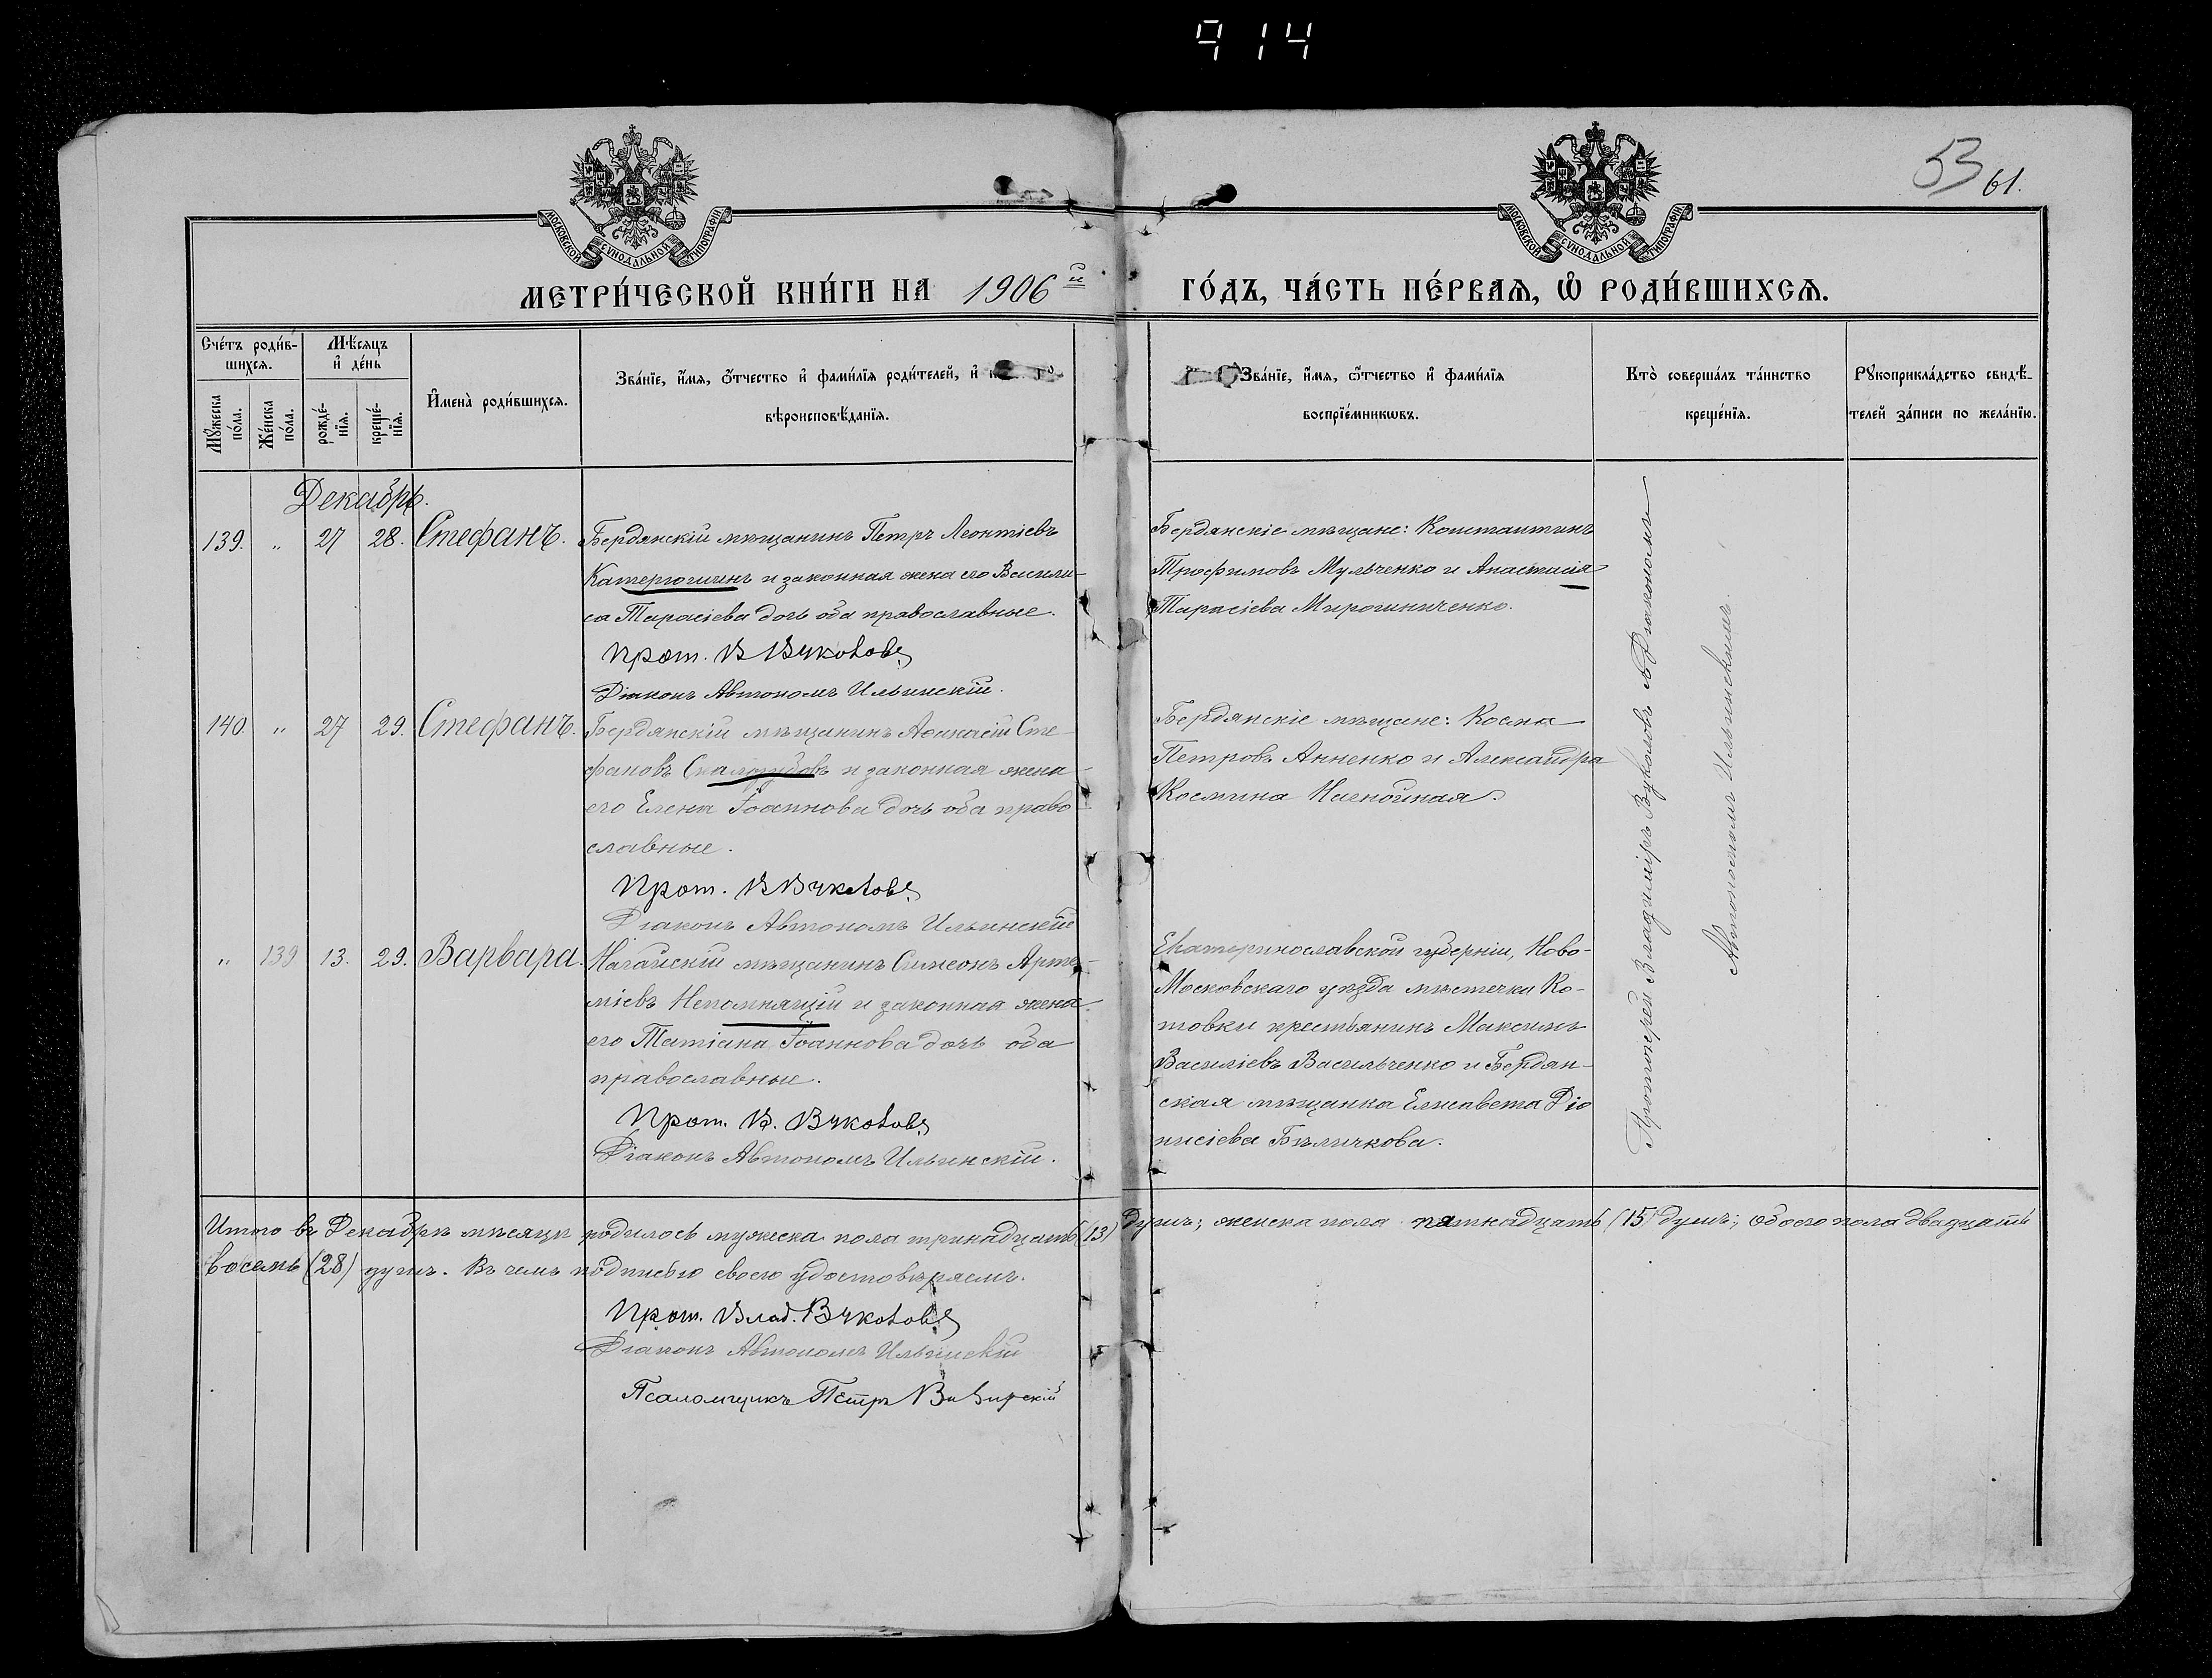 914
53 61.
МОСКОВСКОЙ СѴНОДАЛЬНОЙ ТИПОГРАФІИ
МОСКОВСКОЙ СѴНОДАЛЬНОЙ ТИПОГРАФІИ
МЕТРИ́ЧЕСКОЙ КНИ́ГИ НА 1906й
ГО́ДЪ, ЧА́СТЬ ПЕ́РВАѦ, Ѡ҆ РОДИ́ВШИХСѦ.
Сче́тъ роди́в-
шихсѧ.
Мꙋ́жеска по́ла.
Же́нска по́ла.
Мѣ́сѧцъ
и҆ де́нь
рожде́-
нїѧ.
креще́-
нїѧ.
И҆мена̀ роди́вшихсѧ.
Зва́нїе, и҆́мѧ, ѻ҆́тчество и҆ фами́лїѧ роди́телей, и҆
вѣроисповѣ́данїѧ.
Зва́нїе, и҆́мѧ, ѻ҆́тчество и҆ фами́лїѧ
воспрїе́мникѡвъ.
Кто̀ соверша́лъ та́инство
креще́нїѧ.
Рꙋкоприкла́дство свидѣ́-
телей за́писи по жела́нїю.
Декабрь.
139. " 27 28. Стефанъ.
Бердянскій мѣщанинъ Петръ Леонтіевъ
Катерюшинъ и законная жена его Васили-
са Тарасіева дочь оба православные.
Прот. В Вуколовъ
Діаконъ Автономъ Ильинскій.
Бердянскіе мѣщане: Константинъ
Трофимовъ Мульченко и Анастасія
Тарасіева Мирошниченко.
140. " 27 29. Стефанъ.
Бердянскій мѣщанинъ Аѳанасій Сте-
фановъ Скалозубовъ и законная жена
его Елена Іоаннова дочь оба право-
славные.
Прот. В Вуколовъ
Діаконъ Автономъ Ильинскій
Бердянскіе мѣщане: Косма
Петровъ Анненко и Александра
Космина
" 139 13. 29. Варвара.
Ногайскій мѣщанинъ Симеонъ Арте-
міевъ Непомнящій и законная жена
его Татіана Іоаннова дочь оба
православные.
Прот. В. Вуколовъ
Діаконъ Автономъ Ильинскій.
Екатеринославской губерніи, Ново-
Московскаго уѣзда мѣстечка Ко-
товки крестьянинъ Максимъ
Василіевъ Васильченко и Бердян-
ская мѣщанка Елисавета Діо
нисіева Бѣличкова.
Протоіерей Владиміръ Вуколовъ съ Діакономъ
Автономомъ Ильинскимъ.
Итого въ Декабрѣ мѣсяцѣ родилось мужеска пола тринадцать (13) душъ; женска пола пятнадцать (15) душъ; обоего пола двадцать
восемь (28) душъ. Въ чемъ подписью своею удостовѣряемъ.
Прот. Влад. Вуколовъ
Діаконъ Автономъ Ильинскій
Псаломщикъ Петръ